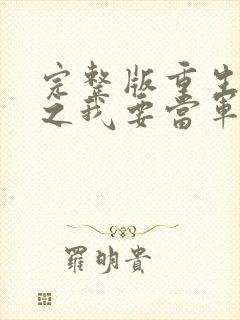 完整版重生
之我要當軍
羅明貴